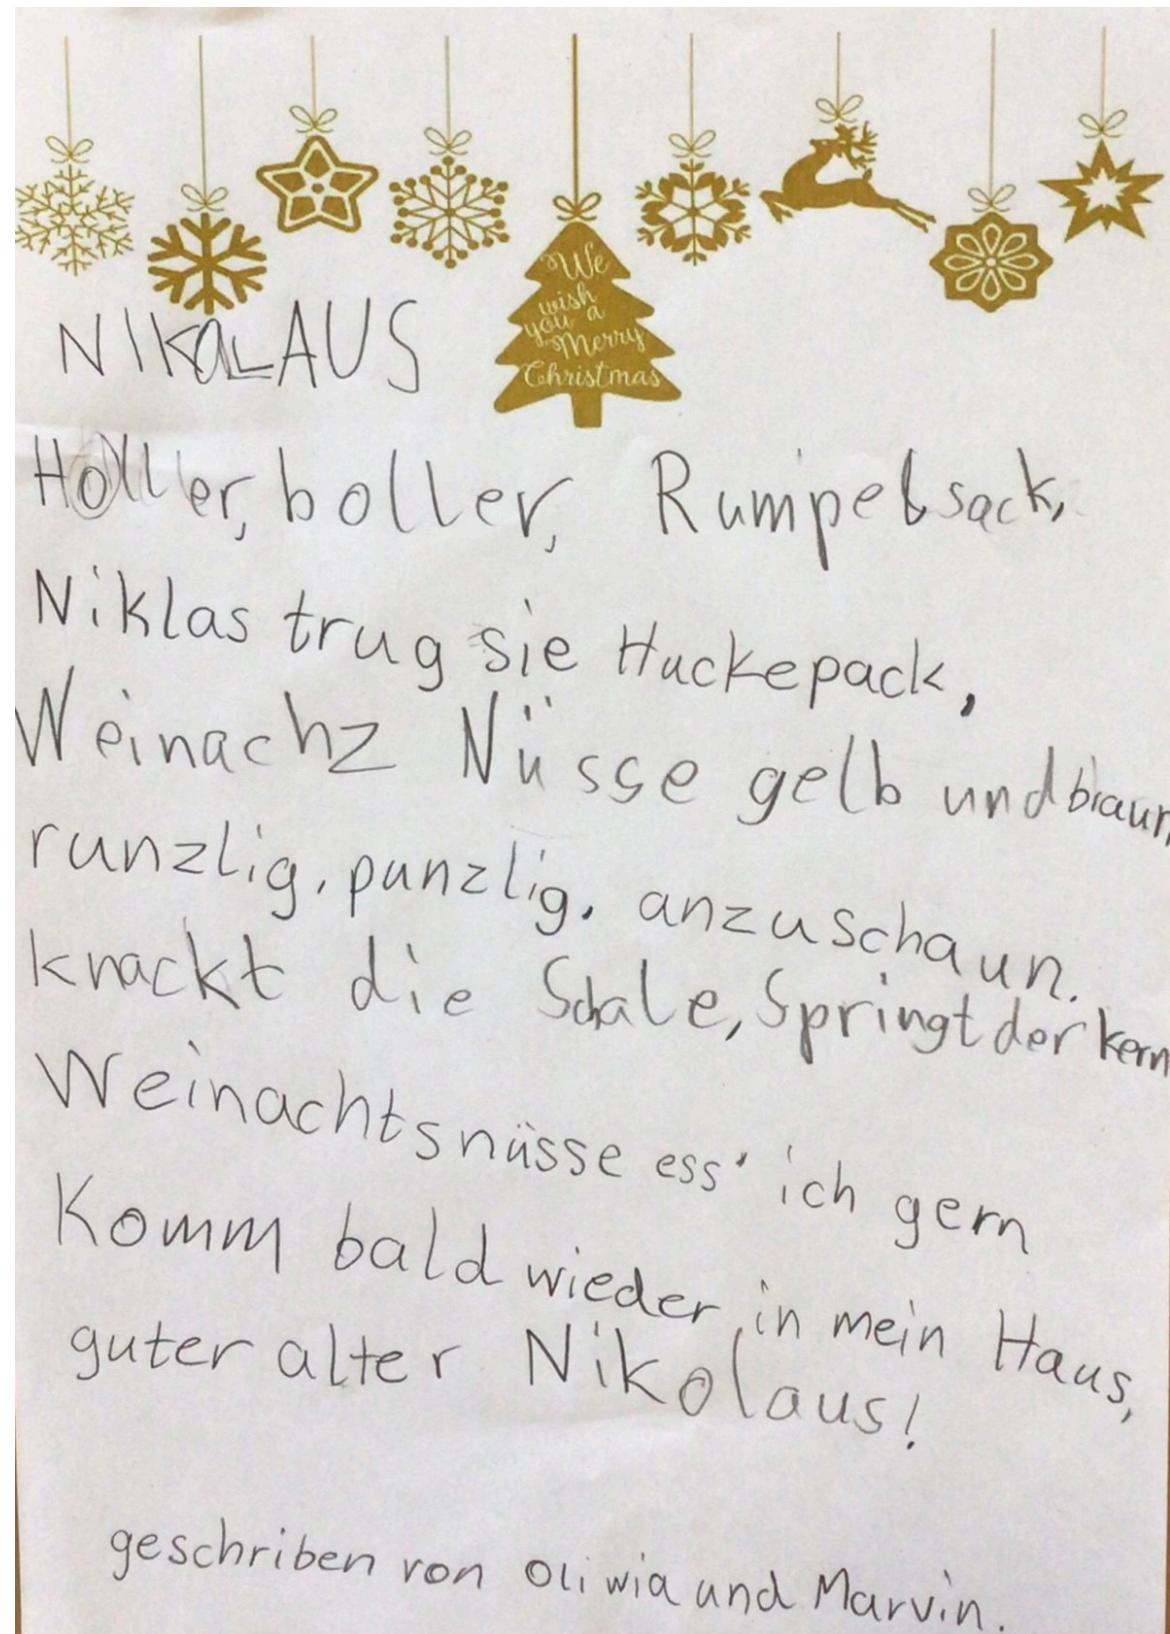 We
wish
you a
Merry
Christmas
NIKOLAUS
Holler, boller, Rumpelsack,
Niklas trug sie Huckepack,
Weinachz Nüsse gelb und braun,
runzlig, punzlig, anzuschaun.
knackt die Schale, Springt der kern
Weinachtsnüsse ess' ich gern
Komm bald wieder in mein Haus,
guter alter Nikolaus!
geschriben von Oliwia und Marvin.